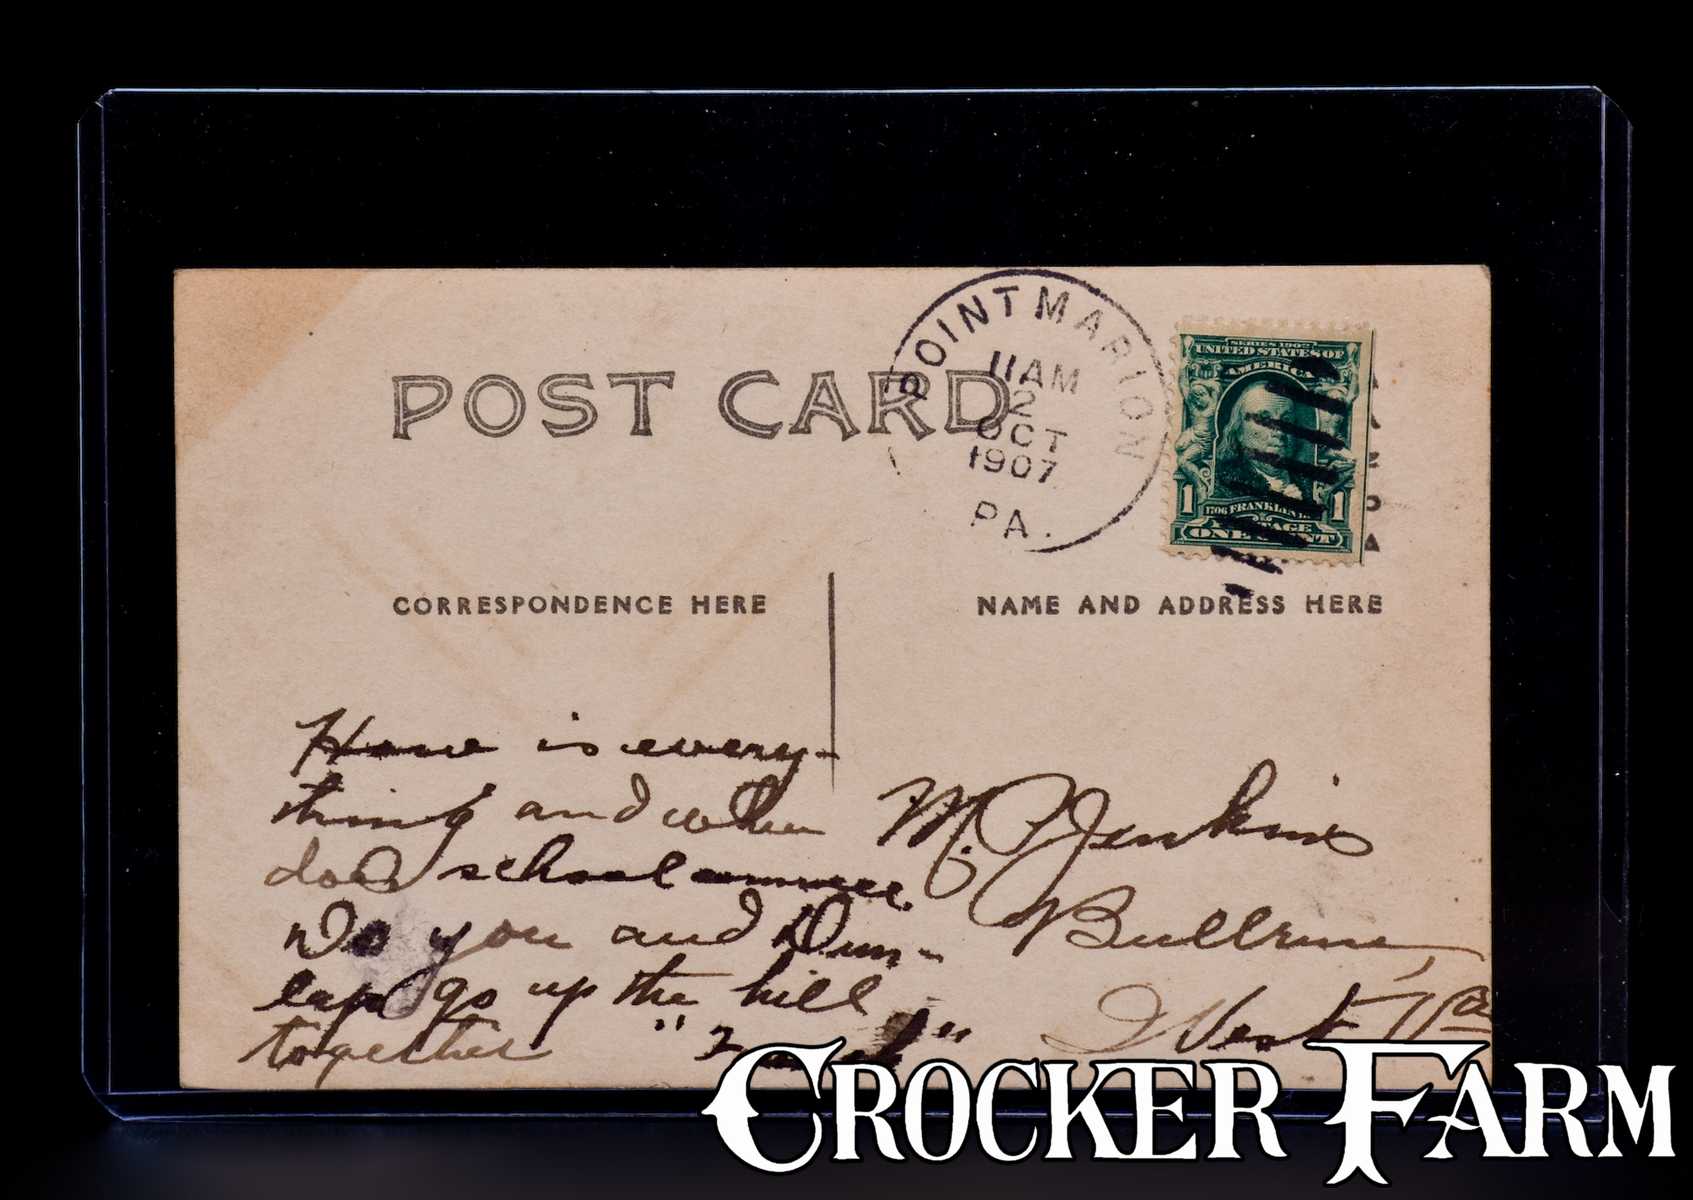 POST CARD
POINT MARION
11 AM
2
OCT
1907
PA.
SERIES 1902
UNITED STATES OF
AMERICA
1 1
1706 FRANKLIN
POSTAGE
ONE CENT
CORRESPONDENCE HERE
NAME AND ADDRESS HERE
How is every-
thing and when
does school commence.
Do you and Dun-
lap go up the hill
together "
M. P. Jenkins
West Pa
CROCKER FARM